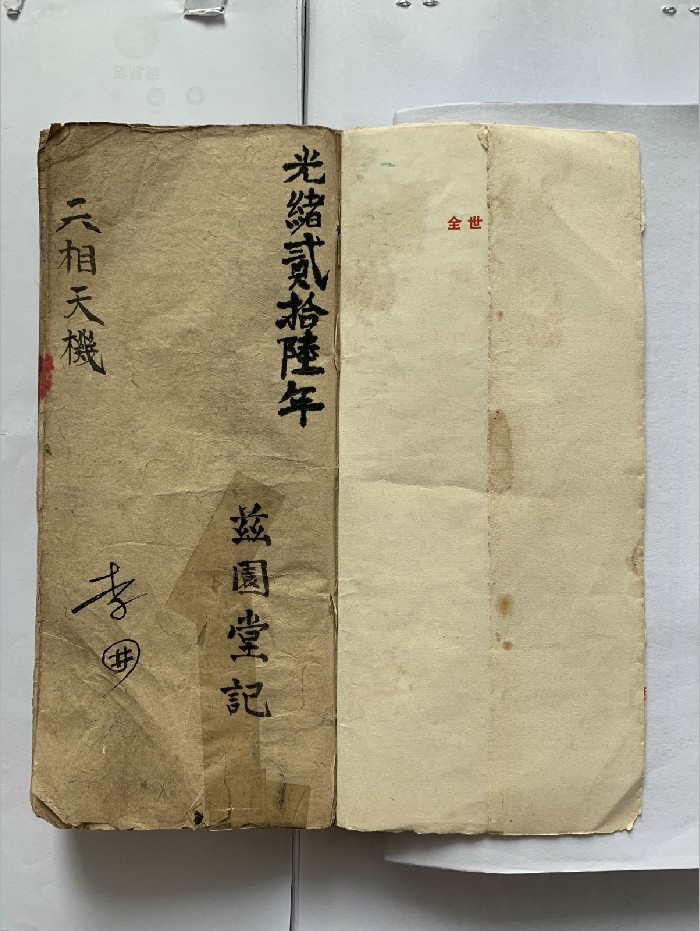 光緒貳拾陸年
茲園堂記
相天機
李
井
全世